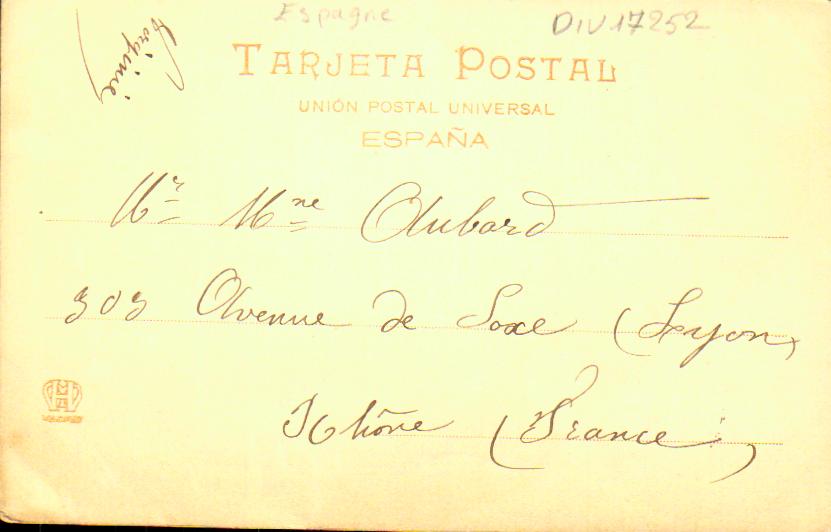 Espagne
DIV17252
Virginie
TARJETA POSTAL
UNIÓN POSTAL UNIVERSAL
ESPAÑA
Mr Mme Aubard
303 Avenue de Saxe (Lyon)
Rhône (France)